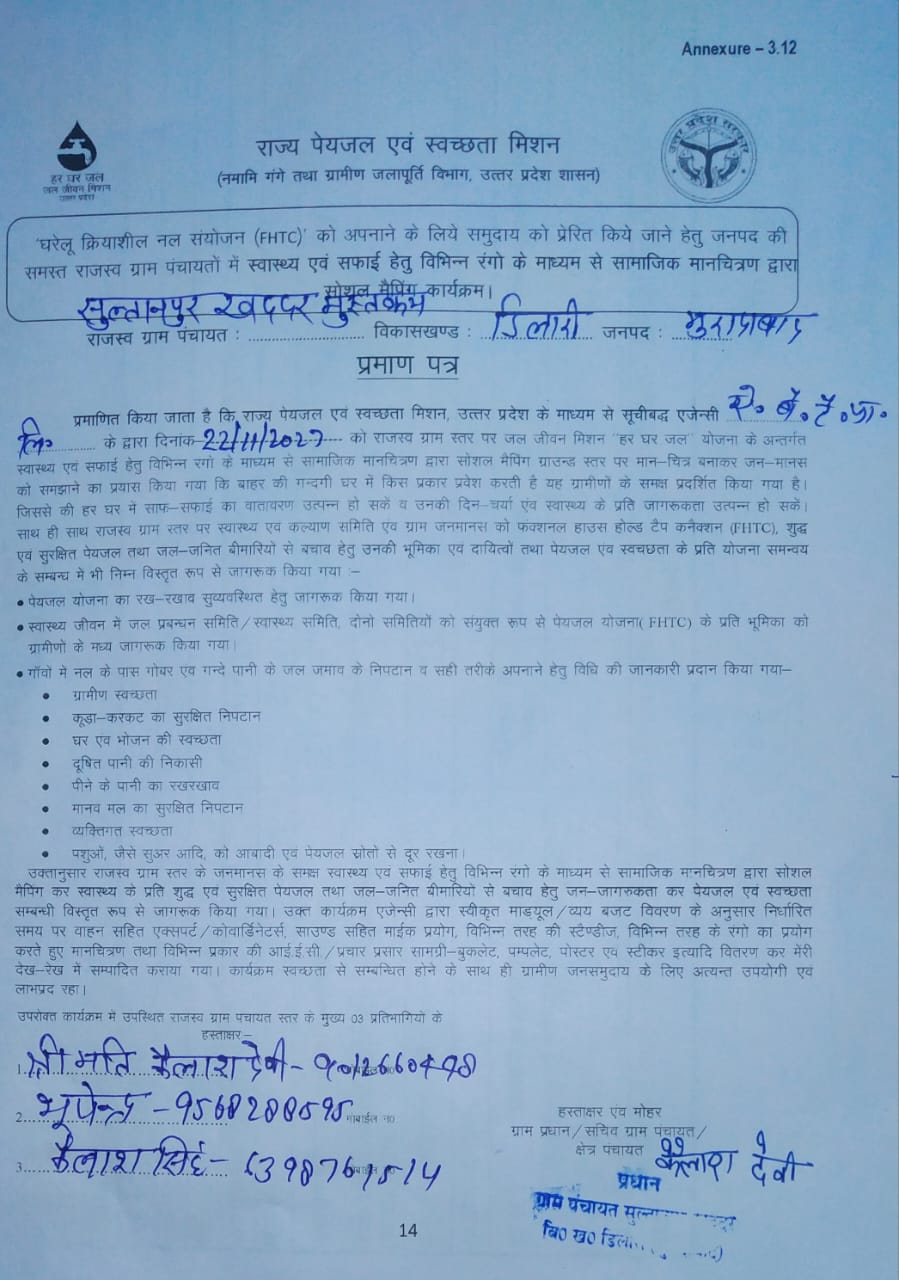 Annexure – 3.12
हर घर जल
जल जीवन मिशन
उत्तर प्रदेश
राज्य पेयजल एवं स्वच्छता मिशन
(नमामि गंगे तथा ग्रामीण जलापूर्ति विभाग, उत्तर प्रदेश शासन)
उत्तर प्रदेश सरकार
'घरेलू क्रियाशील नल संयोजन (FHTC)' को अपनाने के लिये समुदाय को प्रेरित किये जाने हेतु जनपद की
समस्त राजस्व ग्राम पंचायतों में स्वास्थ्य एवं सफाई हेतु विभिन्न रंगो के माध्यम से सामाजिक मानचित्रण द्वारा
सोशल मैपिंग कार्यक्रम।
सुल्तानपुर खददर मुस्तकम
राजस्व ग्राम पंचायत : विकासखण्ड : डिलारी जनपद : मुरादाबाद
प्रमाण पत्र
प्रमाणित किया जाता है कि राज्य पेयजल एवं स्वच्छता मिशन, उत्तर प्रदेश के माध्यम से सूचीबद्ध एजेन्सी
लि० के द्वारा दिनांक-22/11/2022 को राजस्व ग्राम स्तर पर जल जीवन मिशन "हर घर जल" योजना के अन्तर्गत
स्वास्थ्य एवं सफाई हेतु विभिन्न रंगों के माध्यम से सामाजिक मानचित्रण द्वारा सोशल मैपिंग ग्राउन्ड स्तर पर मान–चित्र बनाकर जन–मानस
को समझाने का प्रयास किया गया कि बाहर की गन्दगी घर में किस प्रकार प्रवेश करती है यह ग्रामीणों के समक्ष प्रदर्शित किया गया है।
जिससे की हर घर में साफ–सफाई का वातावरण उत्पन्न हो सकें व उनकी दिन–चर्या एंव स्वास्थ्य के प्रति जागरूकता उत्पन्न हो सकें।
साथ ही साथ राजस्व ग्राम स्तर पर स्वास्थ्य एवं कल्याण समिति एंव ग्राम जनमानस को फंक्शनल हाउस होल्ड टैप कनैक्शन (FHTC), शुद्ध
एवं सुरक्षित पेयजल तथा जल–जनित बीमारियों से बचाव हेतु उनकी भूमिका एवं दायित्वों तथा पेयजल एंव स्वच्छता के प्रति योजना समन्वय
के सम्बन्ध में भी निम्न विस्तृत रूप से जागरूक किया गया :–
• पेयजल योजना का रख–रखाव सुव्यवस्थित हेतु जागरूक किया गया।
• स्वास्थ्य जीवन में जल प्रबन्धन समिति/स्वास्थ्य समिति, दोनो समितियों को संयुक्त रूप से पेयजल योजना( FHTC) के प्रति भूमिका को
ग्रामीणों के मध्य जागरूक किया गया।
• गाँवों में नल के पास गोबर एंव गन्दे पानी के जल जमाव के निपटान व सही तरीके अपनाने हेतु विधि की जानकारी प्रदान किया गया–
• ग्रामीण स्वच्छता
• कूडा–करकट का सुरक्षित निपटान
• घर एंव भोजन की स्वच्छता
• दूषित पानी की निकासी
• पीने के पानी का रखरखाव
• मानव मल का सुरक्षित निपटान
• व्यक्तिगत स्वच्छता
• पशुओं, जैसे सुअर आदि, को आबादी एंव पेयजल स्रोतो से दूर रखना।
उक्तानुसार राजस्व ग्राम स्तर के जनमानस के समक्ष स्वास्थ्य एवं सफाई हेतु विभिन्न रंगो के माध्यम से सामाजिक मानचित्रण द्वारा सोशल
मैपिंग कर स्वास्थ्य के प्रति शुद्ध एवं सुरक्षित पेयजल तथा जल–जनित बीमारियों से बचाव हेतु जन–जागरुकता कर पेयजल एवं स्वच्छता
सम्बन्धी विस्तृत रूप से जागरूक किया गया। उक्त कार्यक्रम एजेन्सी द्वारा स्वीकृत माड्यूल/व्यय बजट विवरण के अनुसार निर्धारित
समय पर वाहन सहित एक्सपर्ट/कोवार्डिनेटर्स, साउण्ड सहित माईक प्रयोग, विभिन्न तरह की स्टैण्डीज, विभिन्न तरह के रंगो का प्रयोग
करते हुए मानचित्रण तथा विभिन्न प्रकार की आई.ई.सी./प्रचार प्रसार सामग्री–बुकलेट, पम्पलेट, पोस्टर एंव स्टीकर इत्यादि वितरण कर मेरी
देख–रेख में सम्पादित कराया गया। कार्यक्रम स्वच्छता से सम्बन्धित होने के साथ ही ग्रामीण जनसमुदाय के लिए अत्यन्त उपयोगी एवं
लाभप्रद रहा।
उपरोक्त कार्यक्रम में उपस्थित राजस्व ग्राम पंचायत स्तर के मुख्य 03 प्रतिभागियों के
हस्ताक्षर–
1. श्रीमति कैलाश देवी-
2. भूपेन्द्र - मोबाईल न०
3. कैलाश सिंह-
हस्ताक्षर एंव मोहर
ग्राम प्रधान/सचिव ग्राम पंचायत/
क्षेत्र पंचायत कैलाश देवी
प्रधान
ग्राम पंचायत
वि० ख०
14